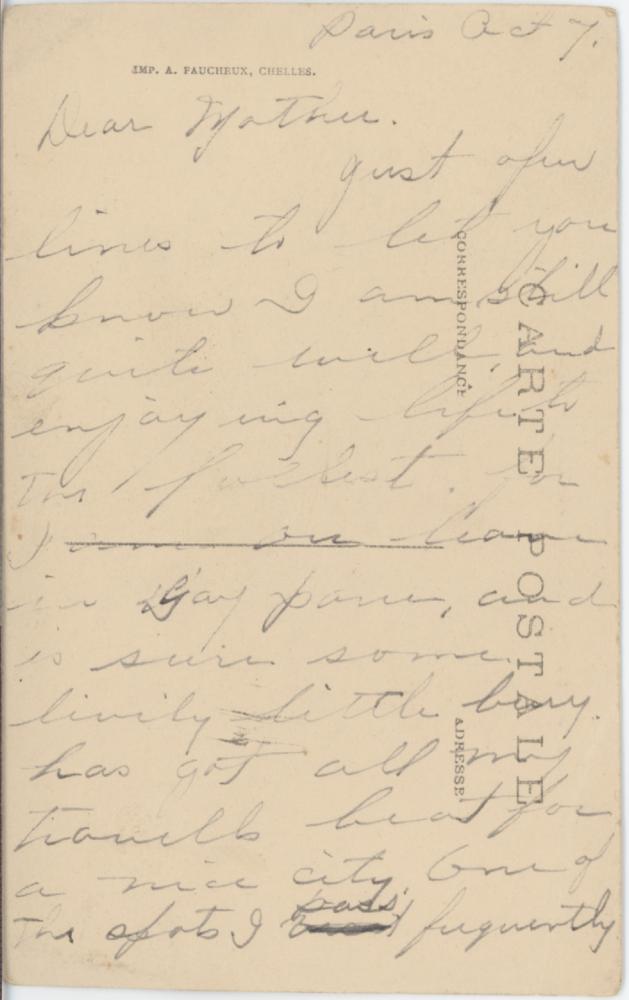 Paris Oct 7.
IMP. A. FAUCHEUX, CHELLES.
Dear Mother.
gust afew
lines to let you
know I am still
quite well, and
enjoying life to
the fullest. for
I am on leave
in Gay paree, and
is sure some
livily little burg.
has got all my
travells beat for
a nice city One of
the spots I pass fequently
CORRESPONDANCE
CARTE POSTALE
ADRESSE